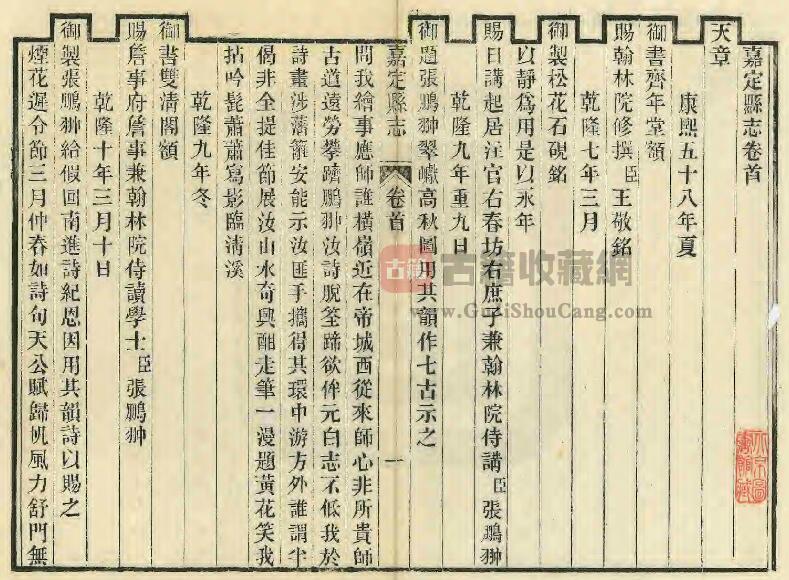 嘉定縣志卷首
天章
康熙五十八年夏
御書齊年堂額
賜翰林院修撰臣王敬銘
乾隆七年三月
御製松花石硯銘
以靜爲用是以永年
賜日講起居注官右春坊右庶子兼翰林院侍講臣張鵬翀
乾隆九年重九日
御題張鵬翀翠巘高秋圖用其韻作七古示之
嘉定縣志 卷首 一
問我繪事應師誰橫嶺近在帝城西從來師心非所貴師
古道遠勞攀躋鵬翀汝詩脫筌蹄欲伴元白志不低我於
詩畫涉藩籬安能示汝匪手攜得其環中游方外誰謂半
偈非全提佳節展汝山水奇興酣走筆一漫題黃花笑我
拈吟髭蕭蕭寫影臨淸溪
乾隆九年冬
御書雙清閣額
賜詹事府詹事兼翰林院侍讀學士臣張鵬翀
乾隆十年三月十日
御製張鵬翀給假回南進詩紀恩因用其韻詩以賜之
煙花遲令節三月仲春如詩句天公賦歸帆風力舒門無
古籍
古籍收藏網
www.GujiShouCang.com